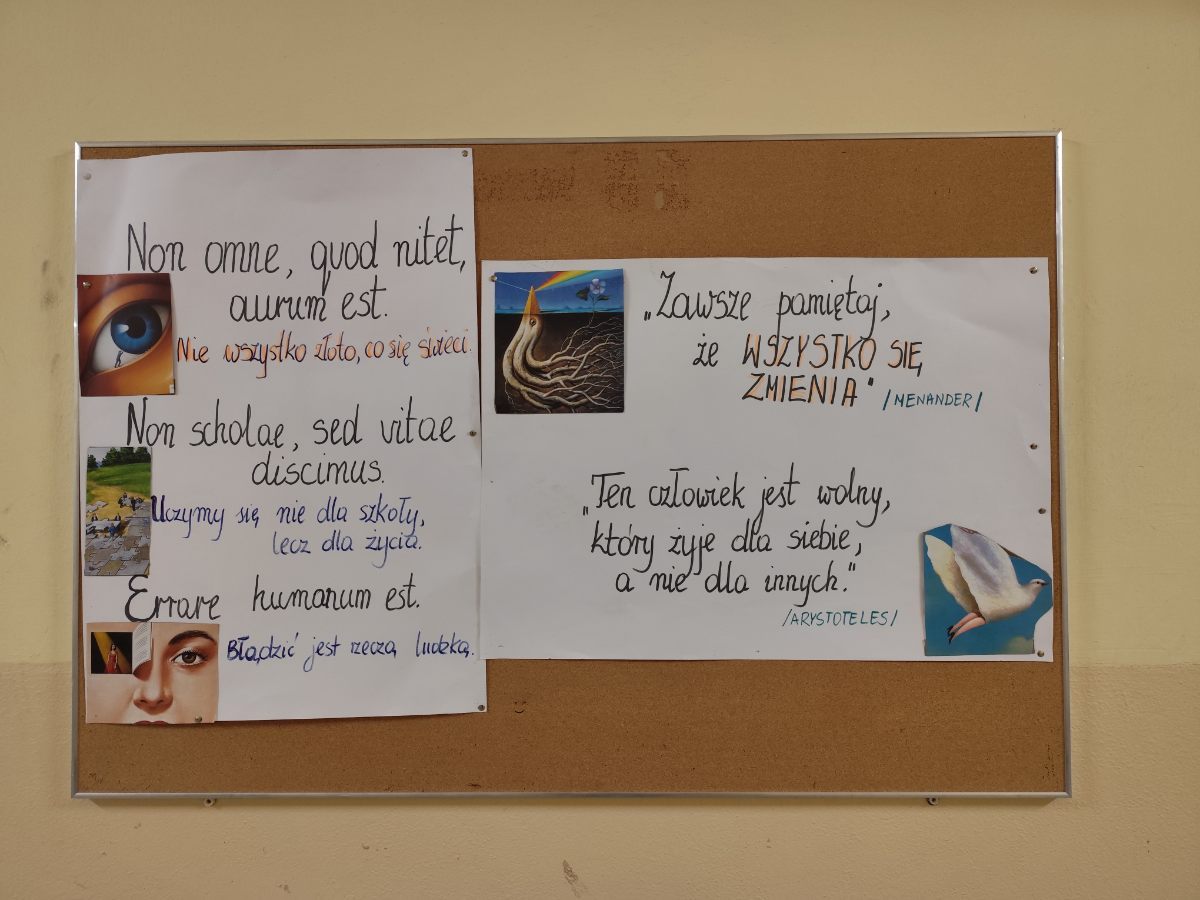 Non omne, quod nitet,
aurum est.
Nie wszystko złoto, co się świeci.
Non scholae, sed vitae
discimus.
Uczymy się nie dla szkoły,
lecz dla życia.
Errare humanum est.
Błądzić jest rzeczą ludzką.
„Zawsze pamiętaj,
że WSZYSTKO SIĘ
ZMIENIA" /MENANDER/
„Ten człowiek jest wolny,
który żyje dla siebie,
a nie dla innych."
/ARYSTOTELES/